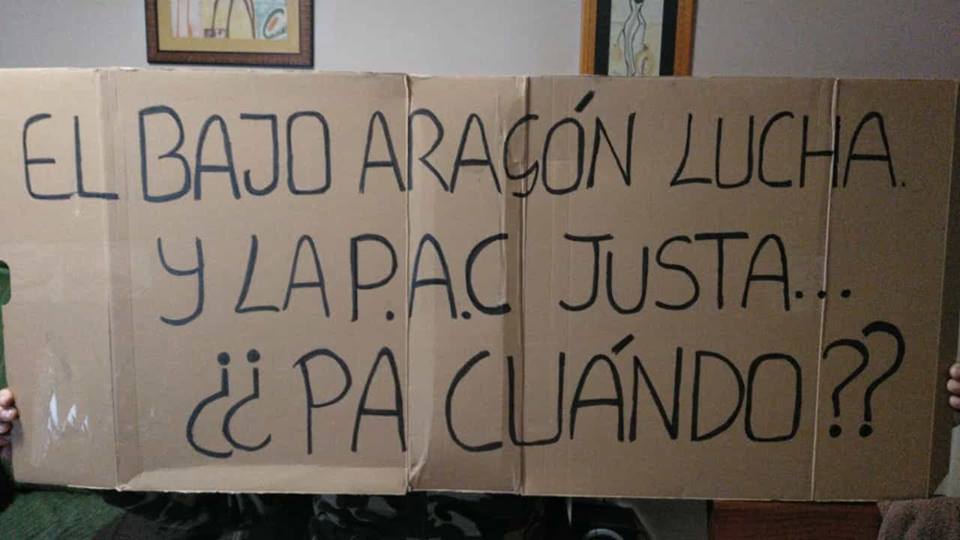 EL BAJO ARAGÓN LUCHA.
Y LA P.A.C JUSTA...
¿¿PA CUÁNDO??